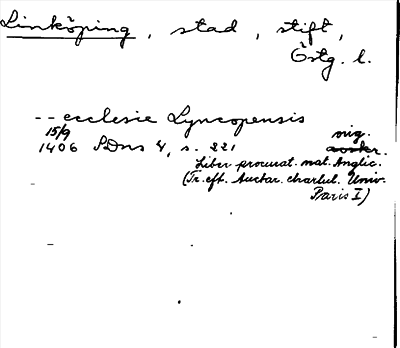 Linköping, stad, stift,
Östg. l.
-- ecclesie Lyncopensis
15/9 orig.
1406 SDns 4, s. 221 avskr.
Liber procurat. nat. Anglic.
(Tr. eft. Auctar. chartul. Univ.
Paris I)